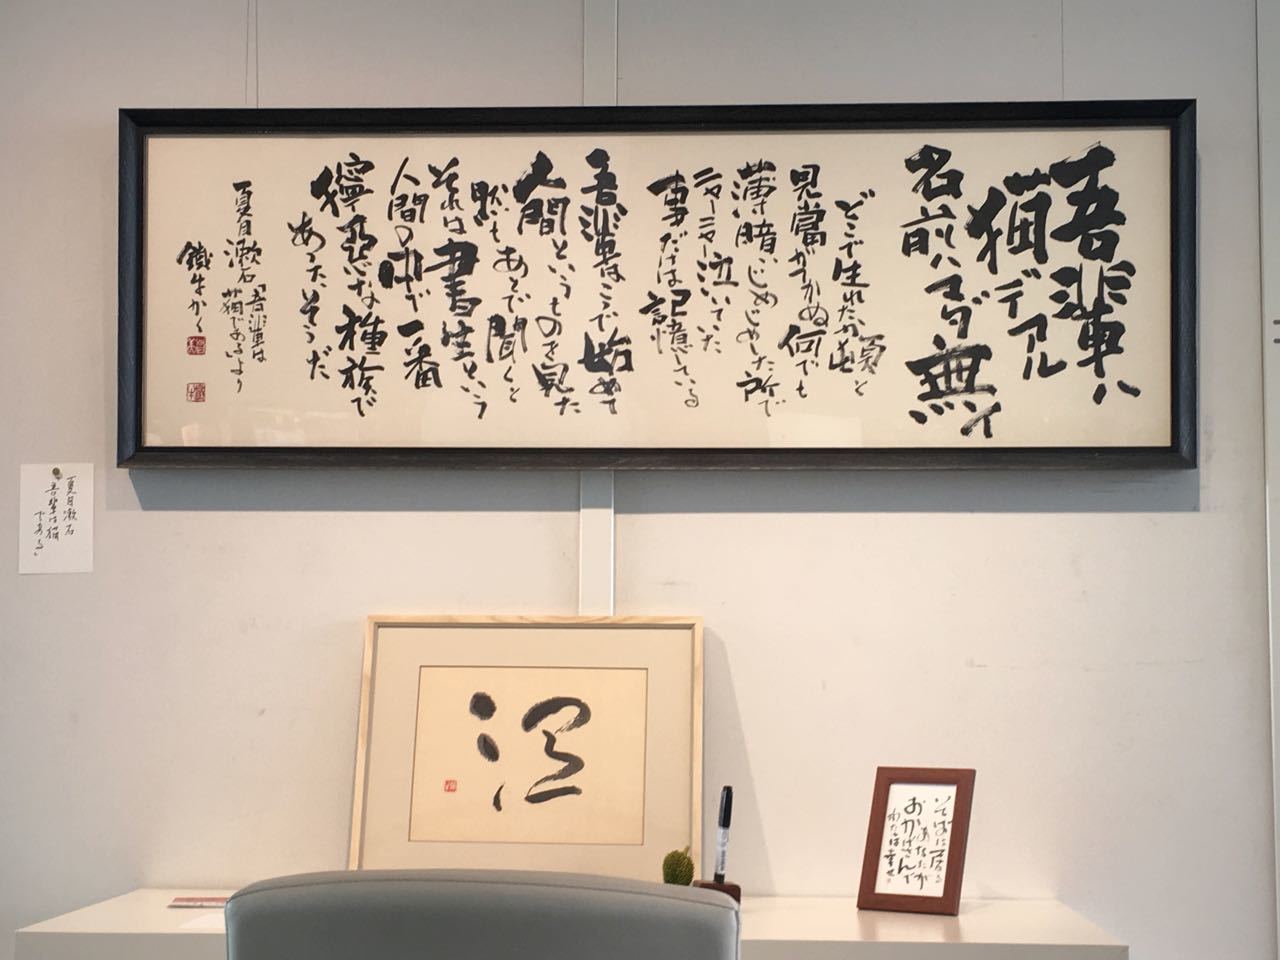 吾輩ハ
猫デアル
名前ハマダ無イ
どこで生れたか頓と
見當がつかぬ何でも
薄暗いじめじめした所で
ニャーニャー泣いていた
事だけは記憶している
吾輩はここで始めて
人間というものを見た
然もあとで聞くと
それは書生という
人間の中で一番
獰悪な種族で
あったそうだ
夏目漱石「吾輩は
猫である」より
鐵牛かく
夏目漱石
吾輩は猫
である
そばに居る
あなたが
おかげさんで
わたしは幸せ